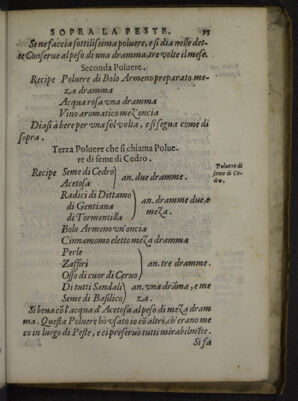 SOPRA LA PESTE. 35
Se ne faccia sottilissima poluere, e si dia nelle det-
te Conserue al peso di una dramma, tre volte il mese.
Seconda Poluere.
Recipe Poluere di Bolo Armeno preparato me-
za dramma
Acqua rosa vna dramma
Vino aromatico mezʼoncia
Diasi à bere per vna sol volta, e si segua come di
sopra.
Terza Poluere che si chiama Polue-
re di seme di Cedro.
Recipe Seme di Cedro
Acetosa
an. due dramme.
Poluere di
seme di Ce-
dro.
Radici di Dittamo
di Gentiana
di Tormentilla
an. dramme due, e
meza.
Bolo Armeno vn'oncia
Cinnamomo eletto meza dramma
Perle
Zaffiri
Osso di cuor di Ceruo
an. tre dramme.
Di tutti Sandali
Seme di Basilico
an. vna drãma, e me
za.
Si beua cõ l'acqua d'Acetosa al peso di meza dram
ma. Questa Poluere hò vsato io cõ altri, ch'erano me
co in luogo di Peste, e ci preseruò tutti mirabilmẽte.
Si fa